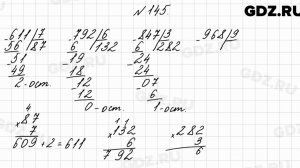 GDZ.RU
№ 145
611|7 792|6 847|3 968|9
56 |87 6 |132 6 |282
51 19 24
49 18 24
2-ост. 12 07
12 6
0-ост. 1-ост.
4 11
×87 ×132 ×282
7 6 3
609+2=611 792 6
GDZ.RU